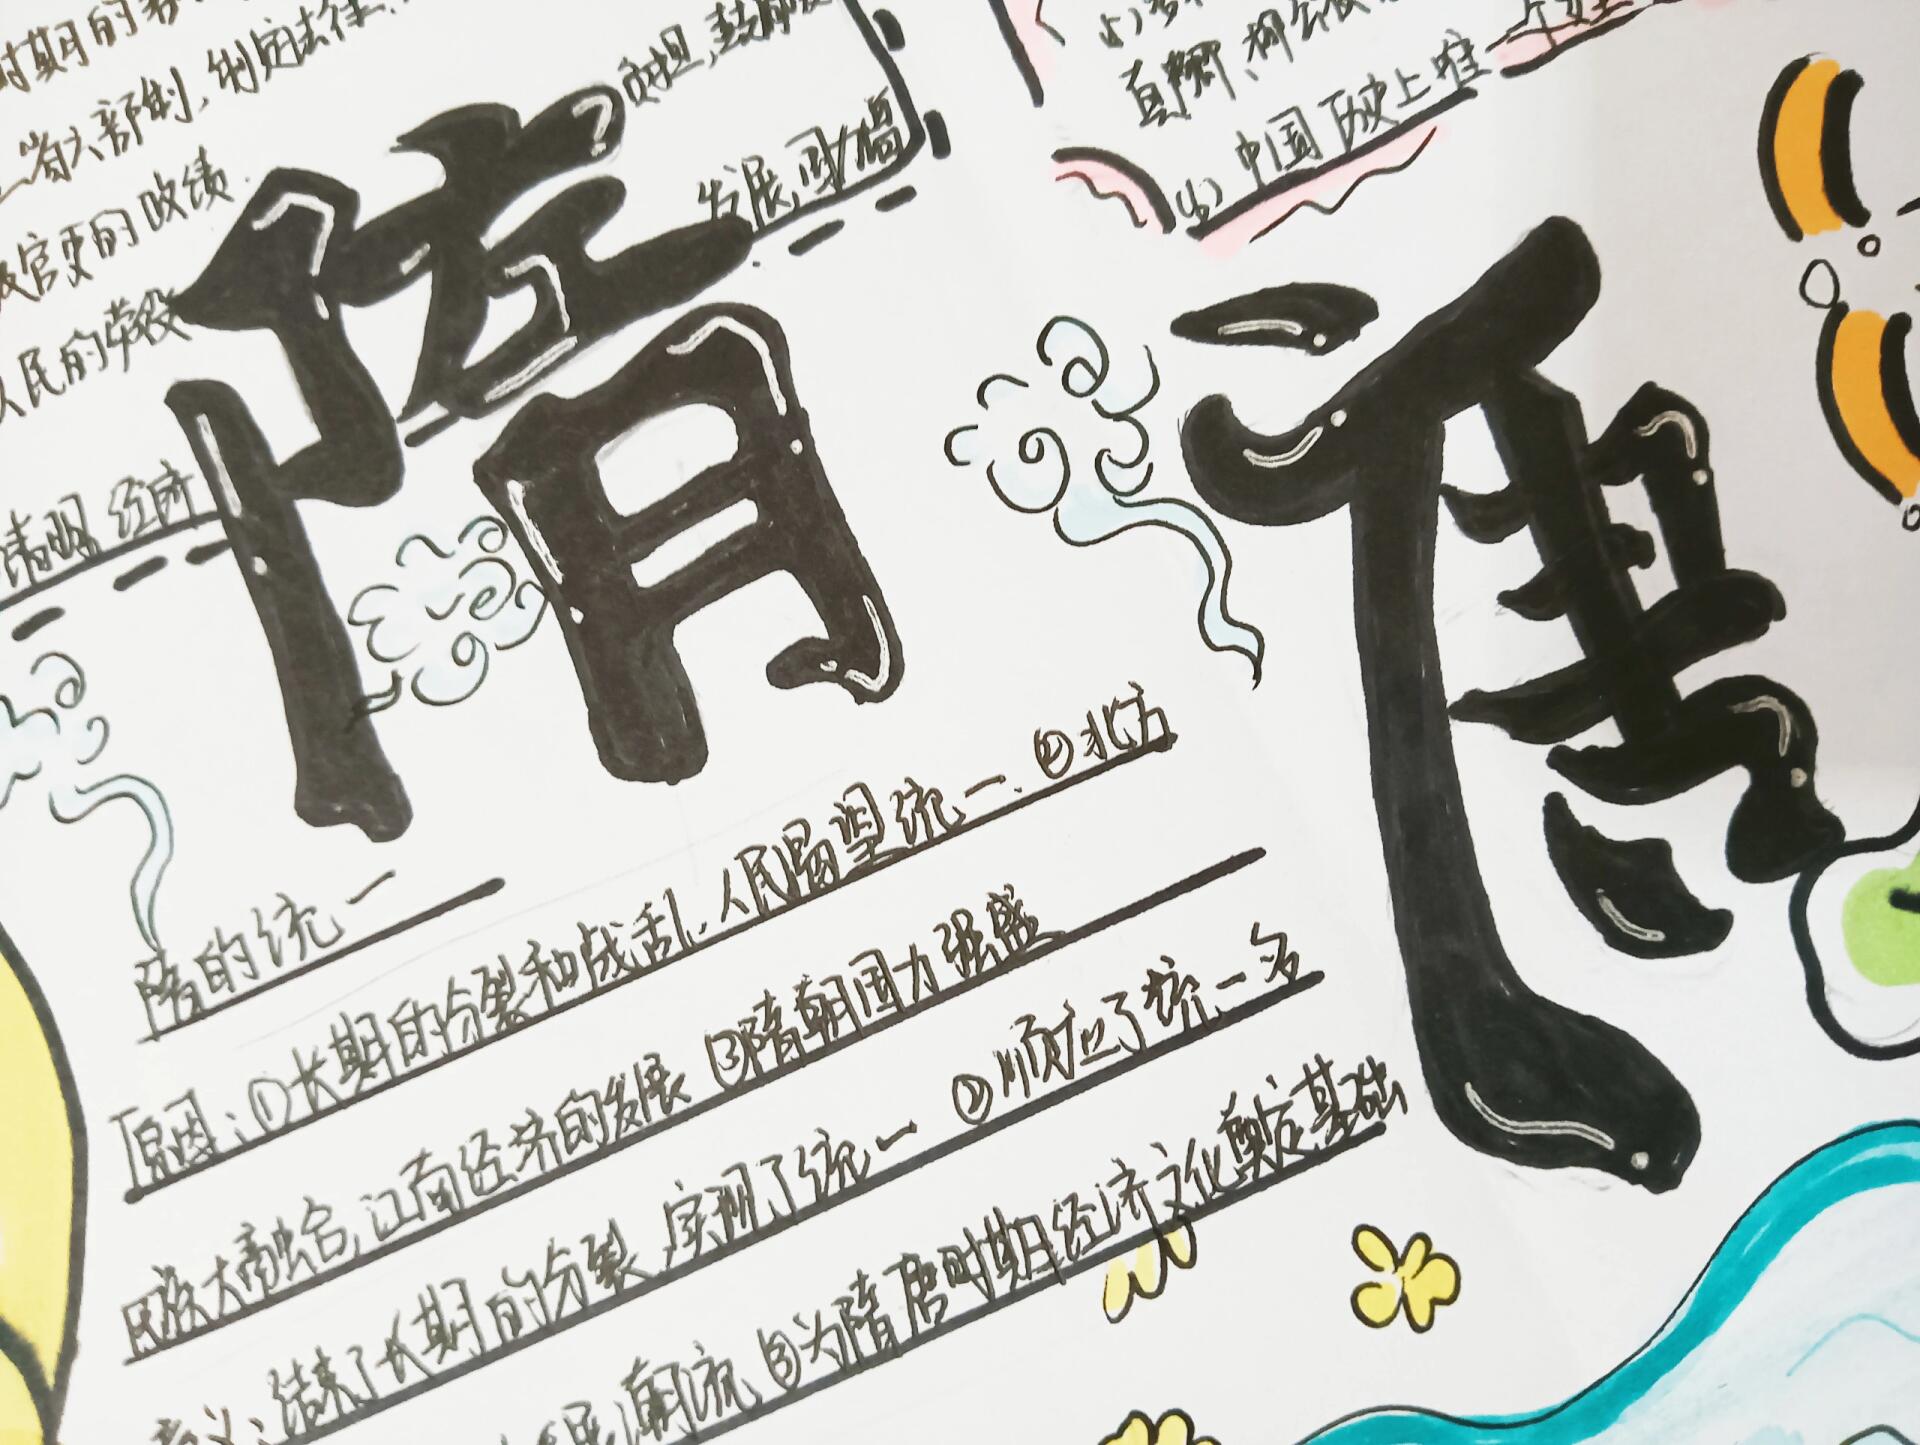 时期的
省六部制,制定法律
官吏的政绩.
人民的劳役
负担,鼓励
发展,国力
清明 经济
真卿、柳公权
(6) 中国历史上唯一
隋唐
隋的统一
原因:①长期的分裂和战乱,人民渴望统一.②北方
民族大融合,江南经济的发展 ③隋朝国力强盛
意义:结束了长期的分裂,实现了统一 ②顺应了统一多
展潮流,③为隋唐时期经济文化奠定基础